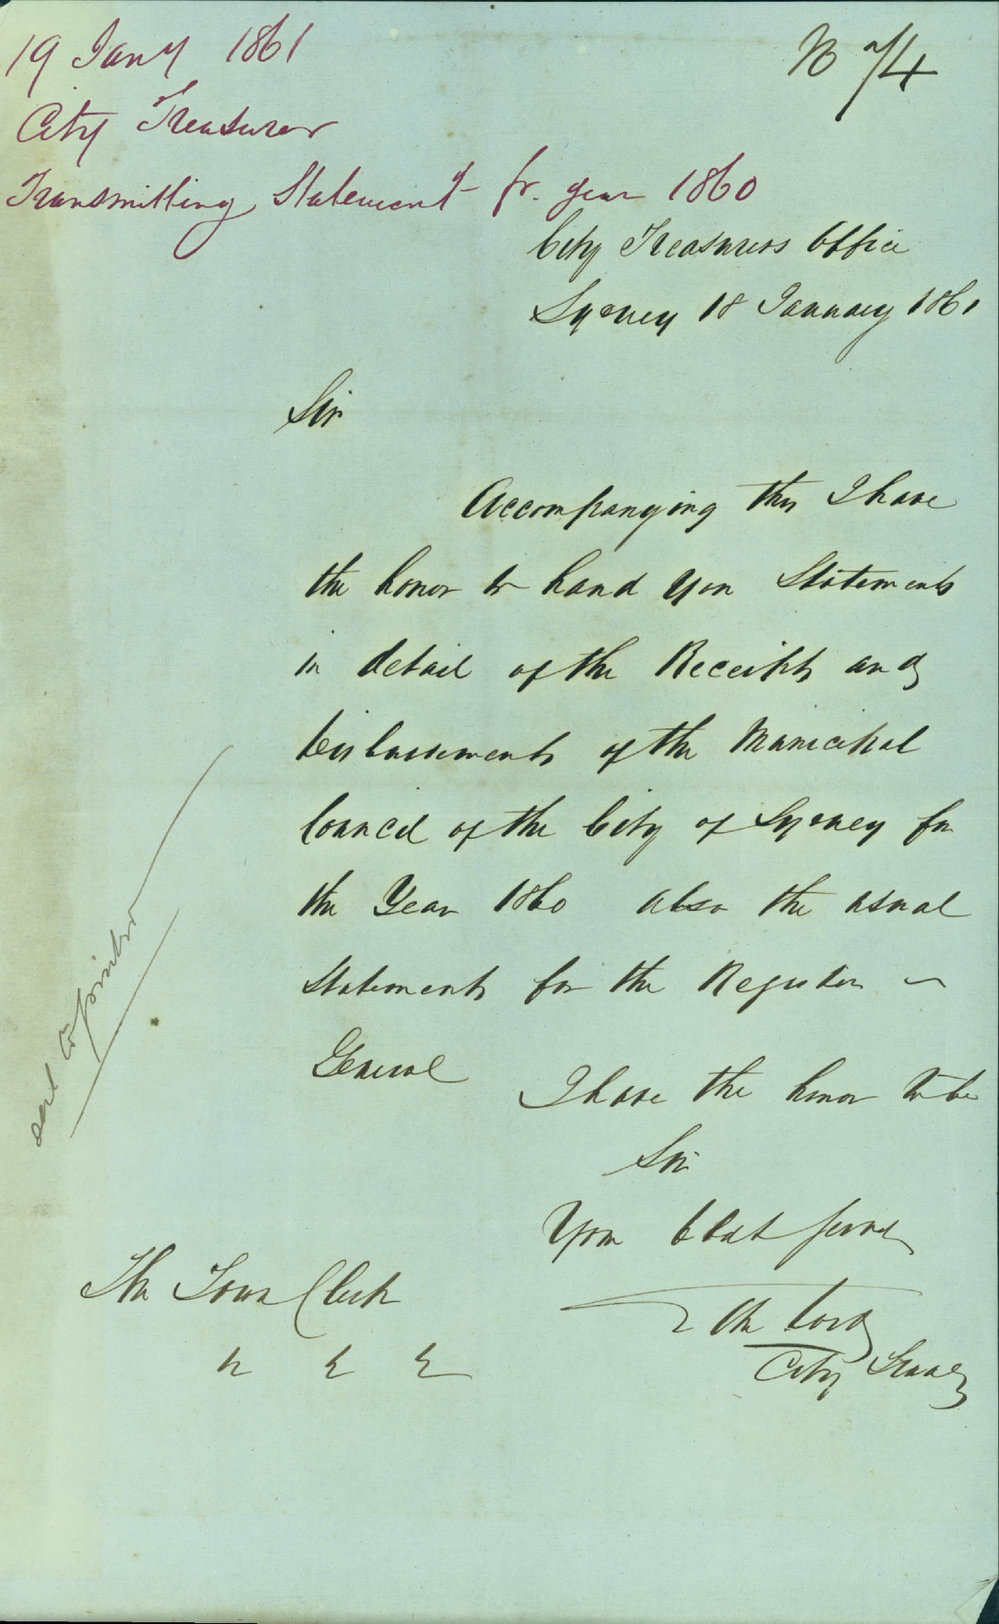 19 Jany 1861
No 74
City Treasurer
Transmitting Statement fr. year 1860
City Treasurers Office
Sydney 18 January 1861
Sir
Accompanying this I have
the honor to hand you Statements
in detail of the Receipts and
Disbursements of the Municipal
Council of the City of Sydney for
the Year 1860 also the usual
Statements for the Registrar –
General
I have the honor to be
Sir
Your Obdt servt
The Town Clerk
City Treasr
sent to printer